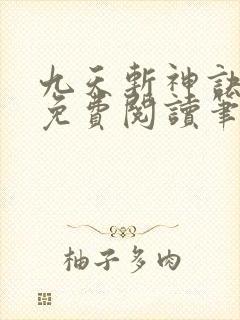 九天斬神訣
免費閱讀筆
柚子多肉